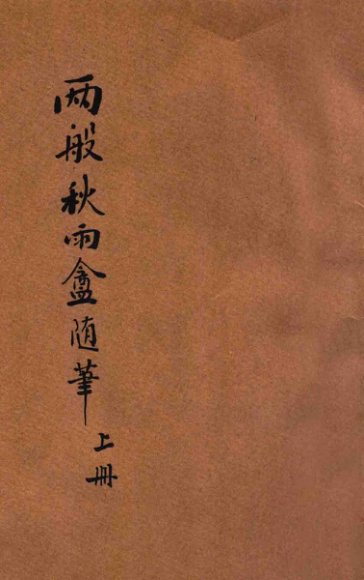 两般秋雨盦随筆
上冊